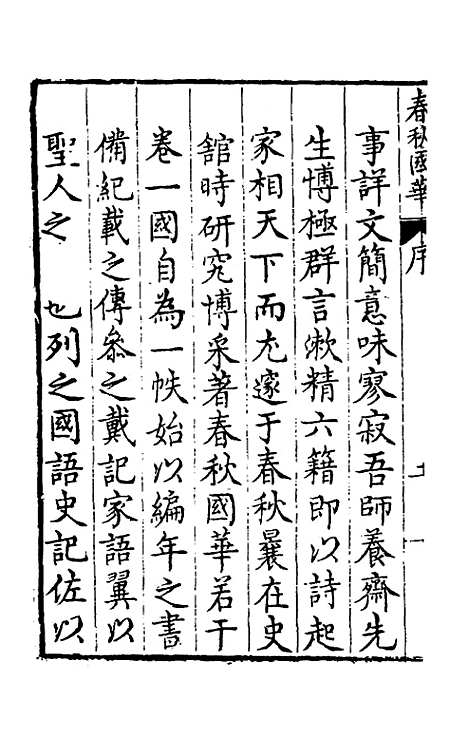 春秋國華
序
十一
事詳文簡意味寥寂吾師養齋先
生博極群言漱精六籍即以詩起
家相天下而尤邃于春秋曩在史
舘時研究博采著春秋國華若干
卷一國自為一帙始以編年之書
備紀載之傳叅之戴記家語翼以
聖人之 也列之國語史記佐以